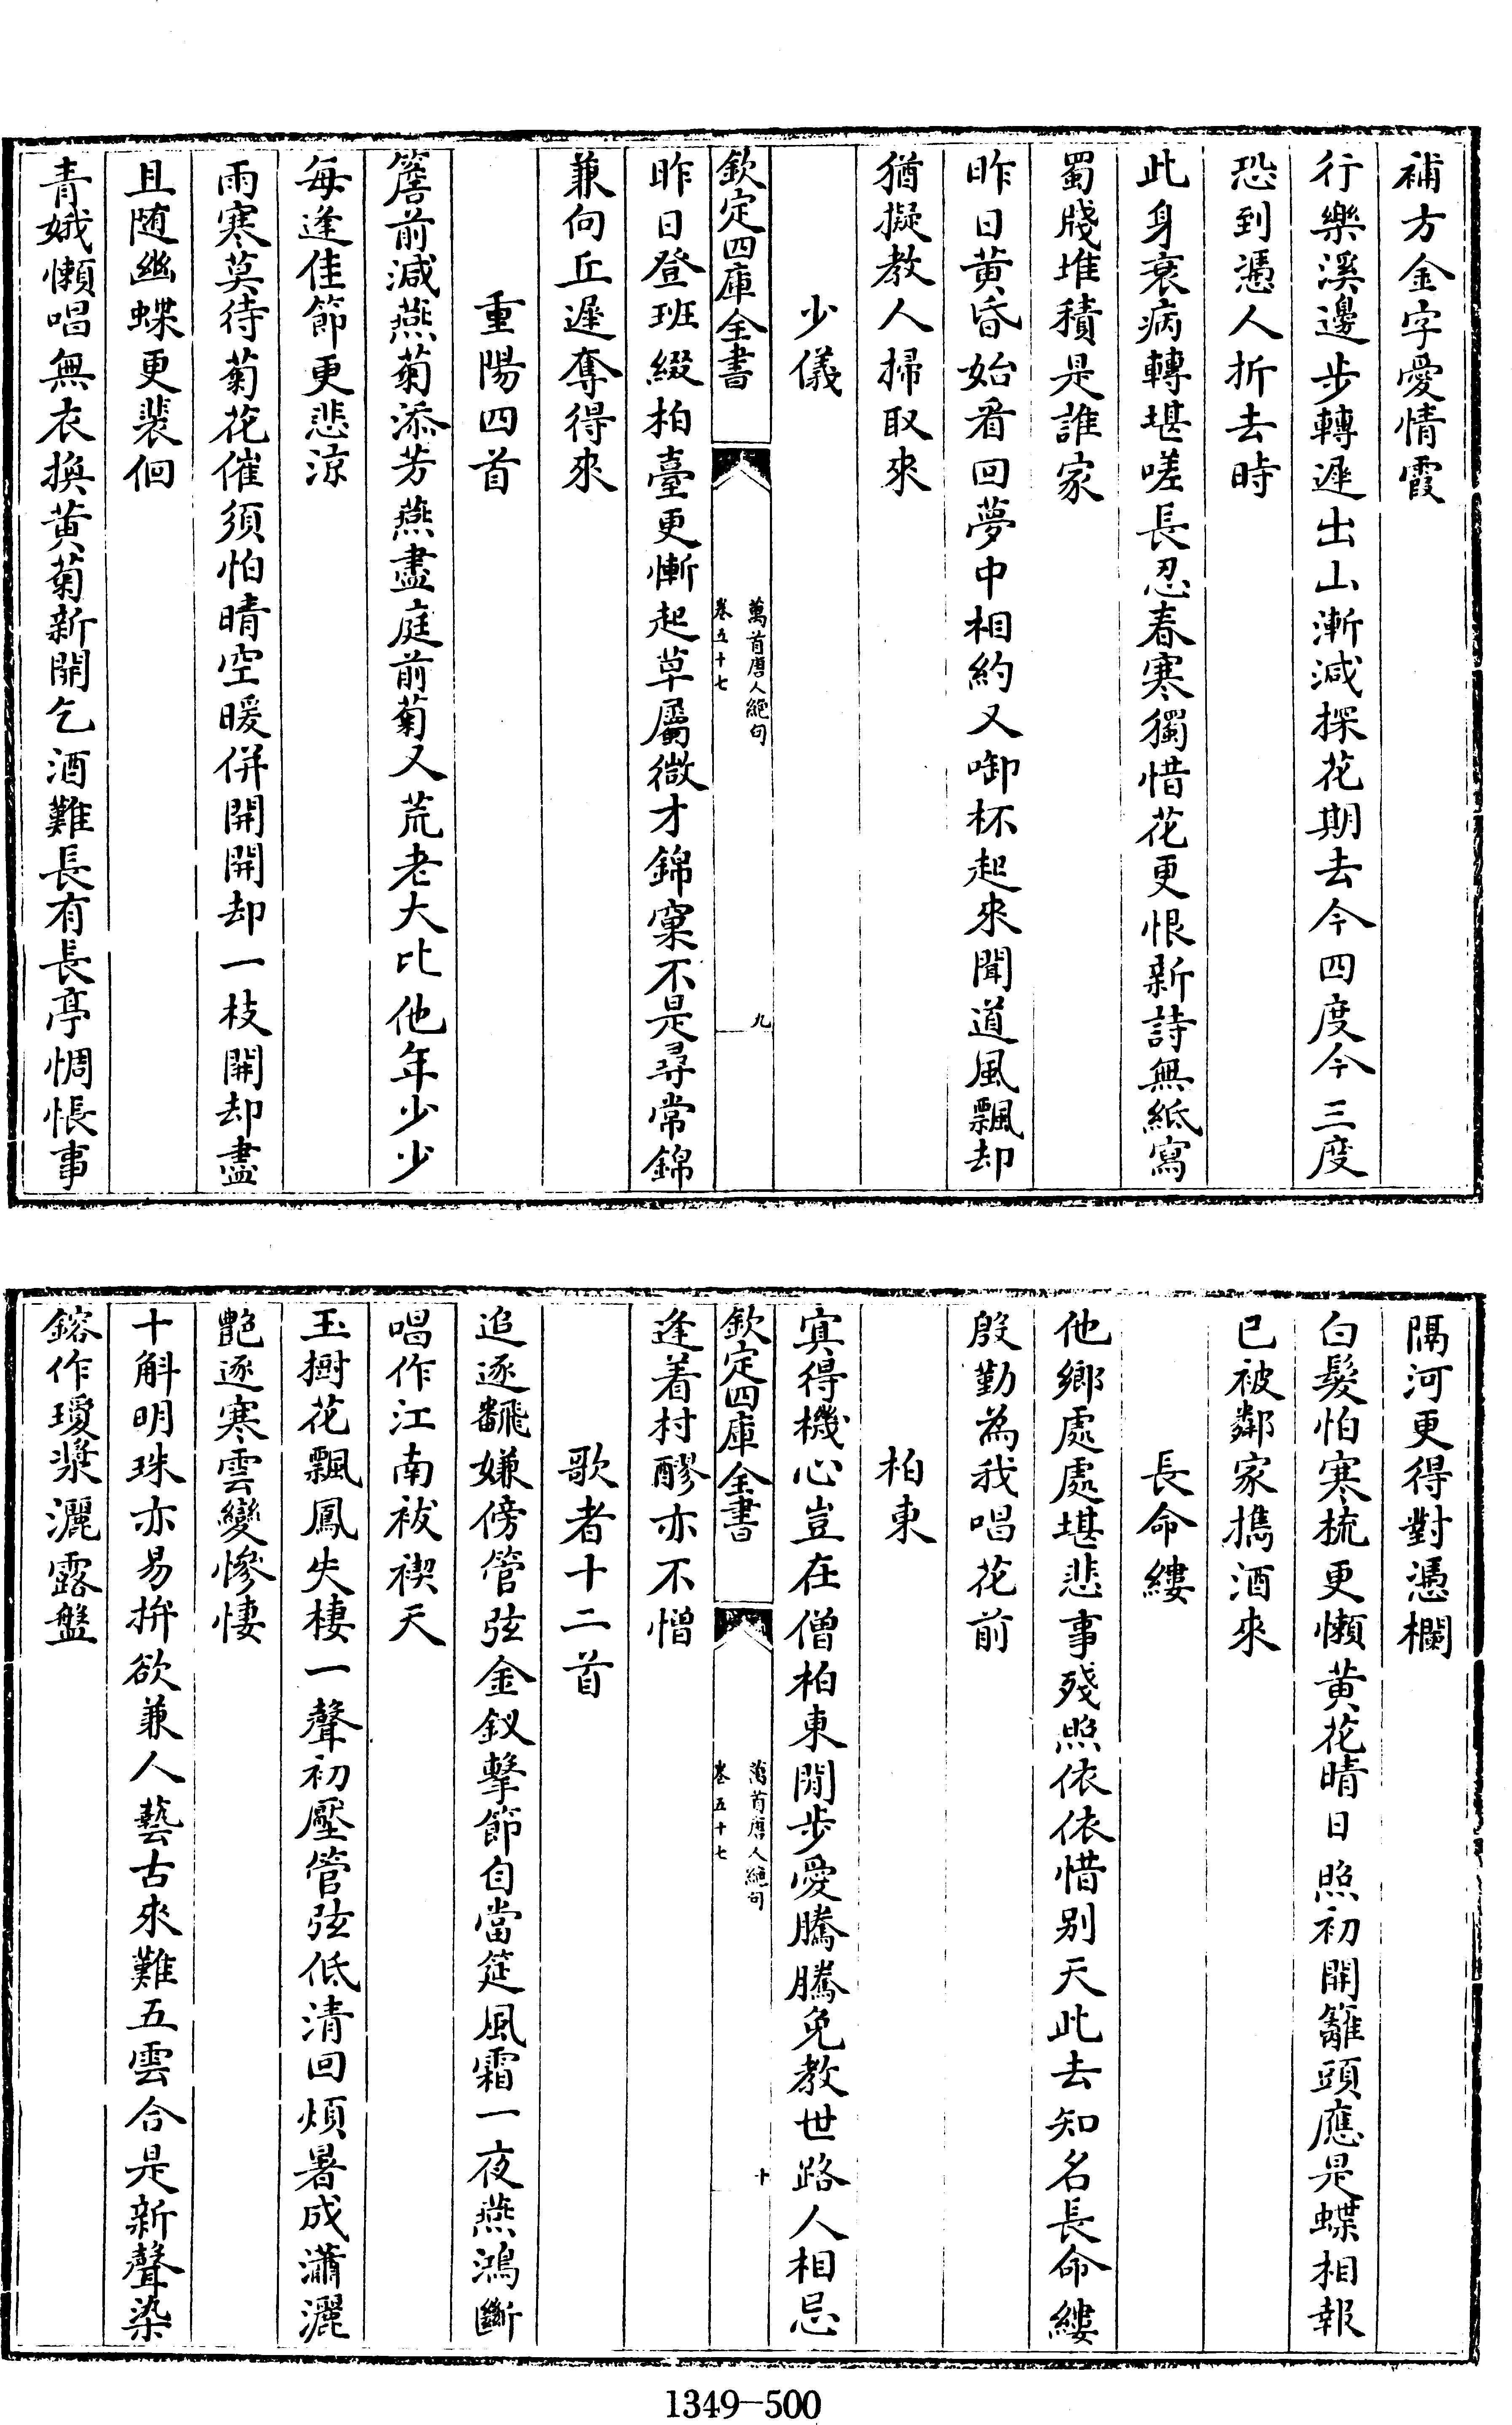 補方金字愛情霞
行樂溪邊步轉遲出山漸減探花期去今四度今三度
恐到憑人折去時
此身衰病轉堪嗟長忍春寒獨惜花更恨新詩無紙寫
蜀牋堆積是誰家
昨日黄昏始看回夢中相約又啣杯起來聞道風飄却
猶擬教人掃取來
少儀
欽定四庫全書
萬首唐人絶句
卷五十七
九
昨日登班綴柏臺更慚起草屬微才錦窠不是尋常錦
兼向丘遲奪得來
重陽四首
簷前減燕菊添芳燕盡庭前菊又荒老大比他年少少
每逢佳節更悲涼
雨寒莫待菊花催須怕晴空暖併開開却一枝開却盡
且随幽蝶更裴佪
青娥懶唱無衣換黄菊新開乞酒難長有長亭惆悵事
隔河更得對憑欄
白髮怕寒梳更懶黄花晴日照初開籬頭應是蝶相報
已被鄰家擕酒來
長命縷
他鄉處處堪悲事殘照依依惜别天此去知名長命縷
殷勤為我唱花前
柏東
寘得機心豈在僧柏東閒步愛騰騰免教世路人相忌
欽定四庫全書
萬首唐人絶句
卷五十七
十
逢着村醪亦不憎
歌者十二首
追逐翻嫌傍管弦金釵擊節自當筵風霜一夜燕鴻斷
唱作江南祓禊天
玉樹花飄鳳失棲一聲初壓管弦低清回煩暑成瀟灑
艶逐寒雲變慘悽
十斛明珠亦易拚欲兼人藝古來難五雲合是新聲染
鎔作瓊漿灑露盤
1349-500